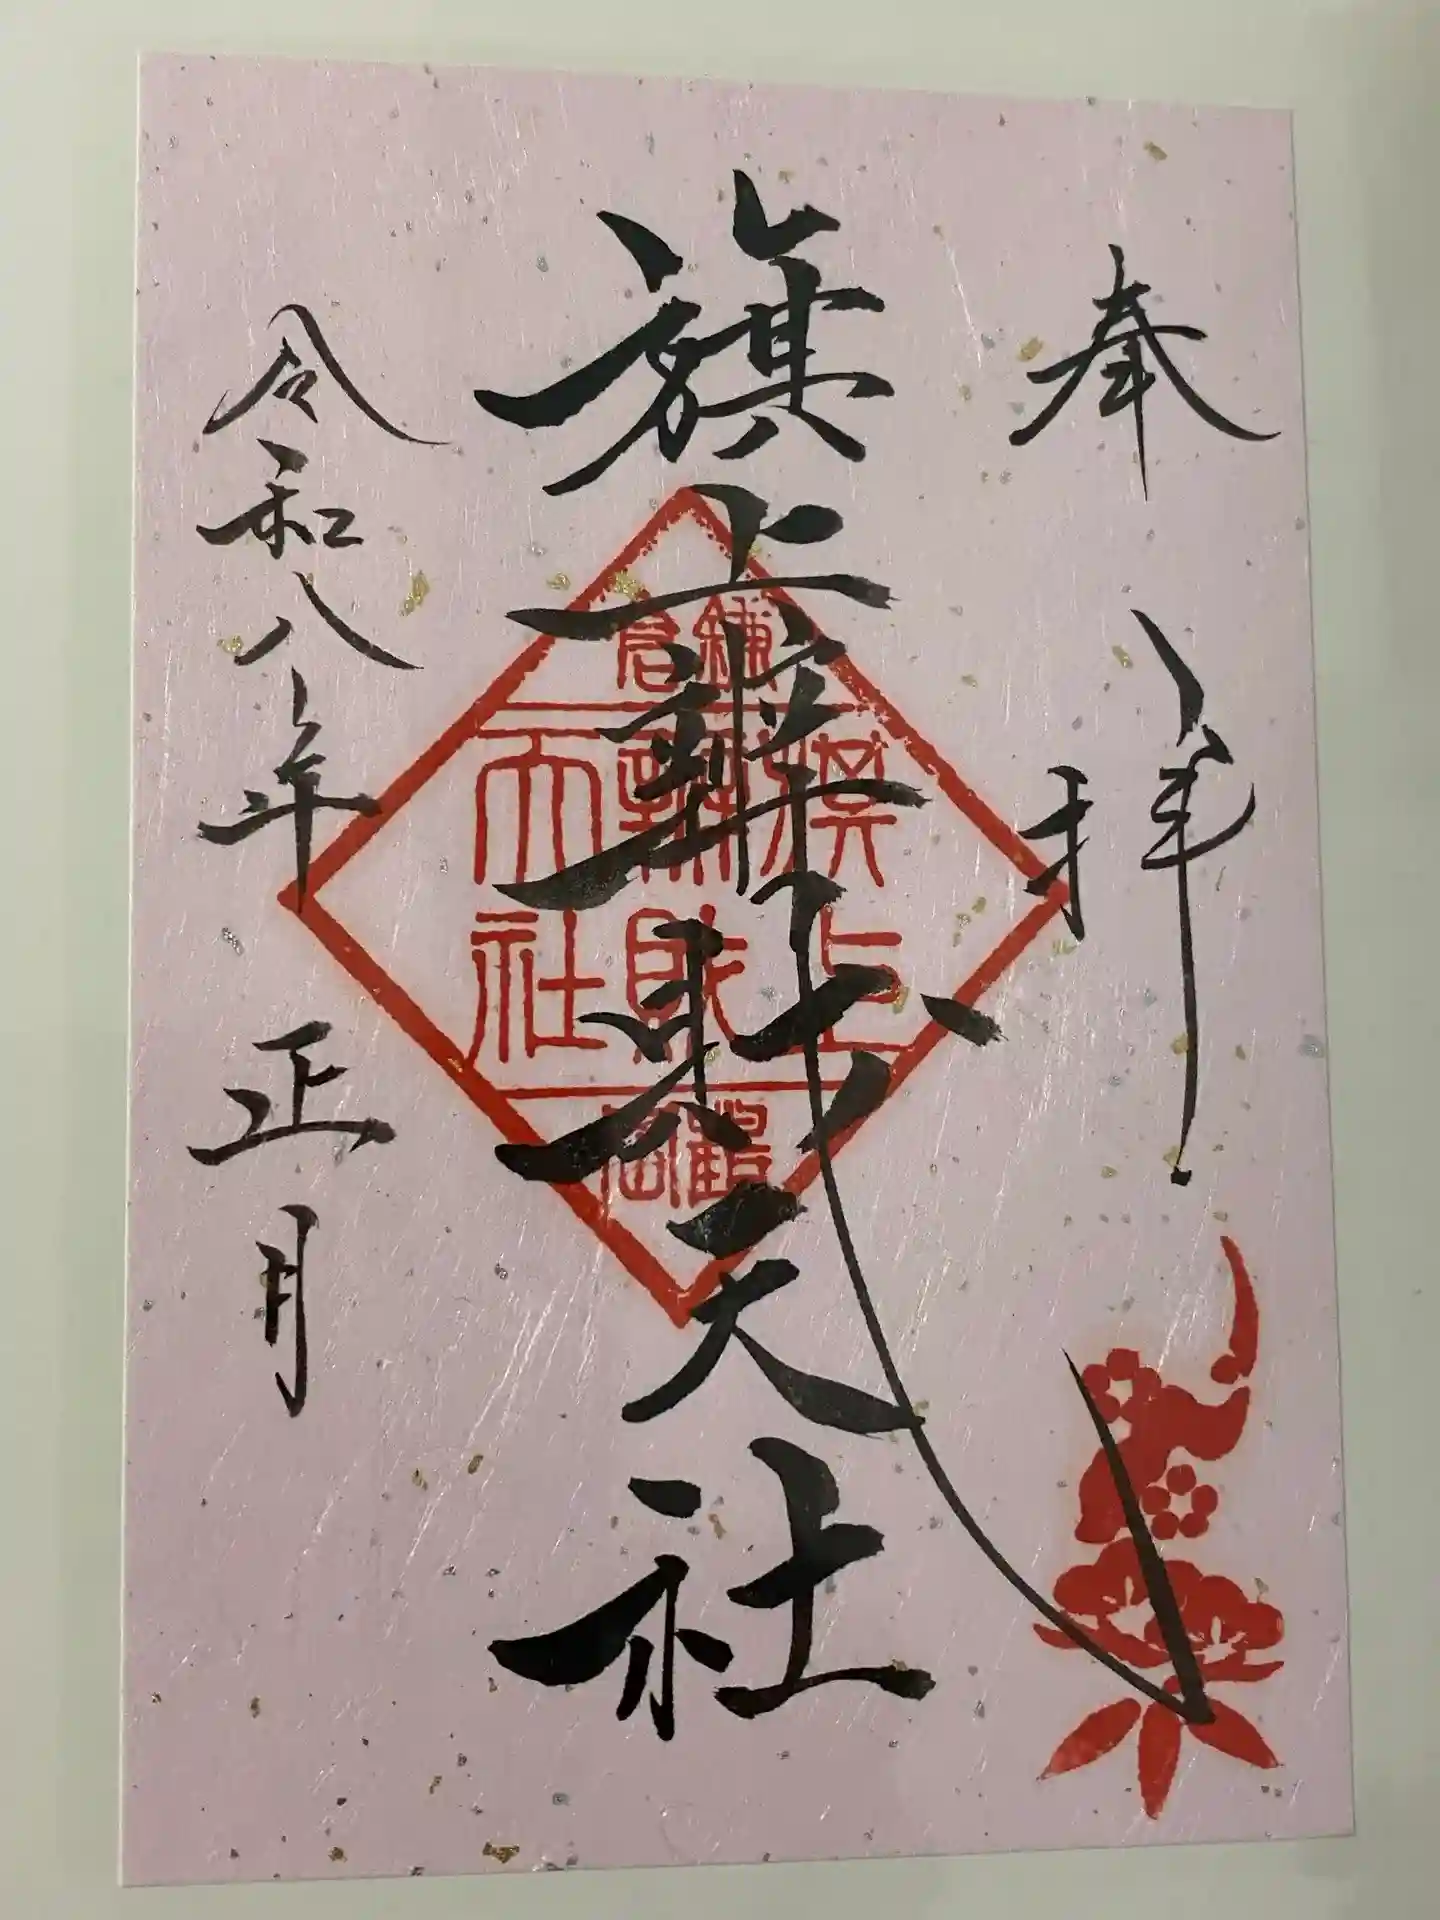 奉拝
旗上弁財天社
令和八年正月
鎌倉
旗上
辨財
天社
鶴岡